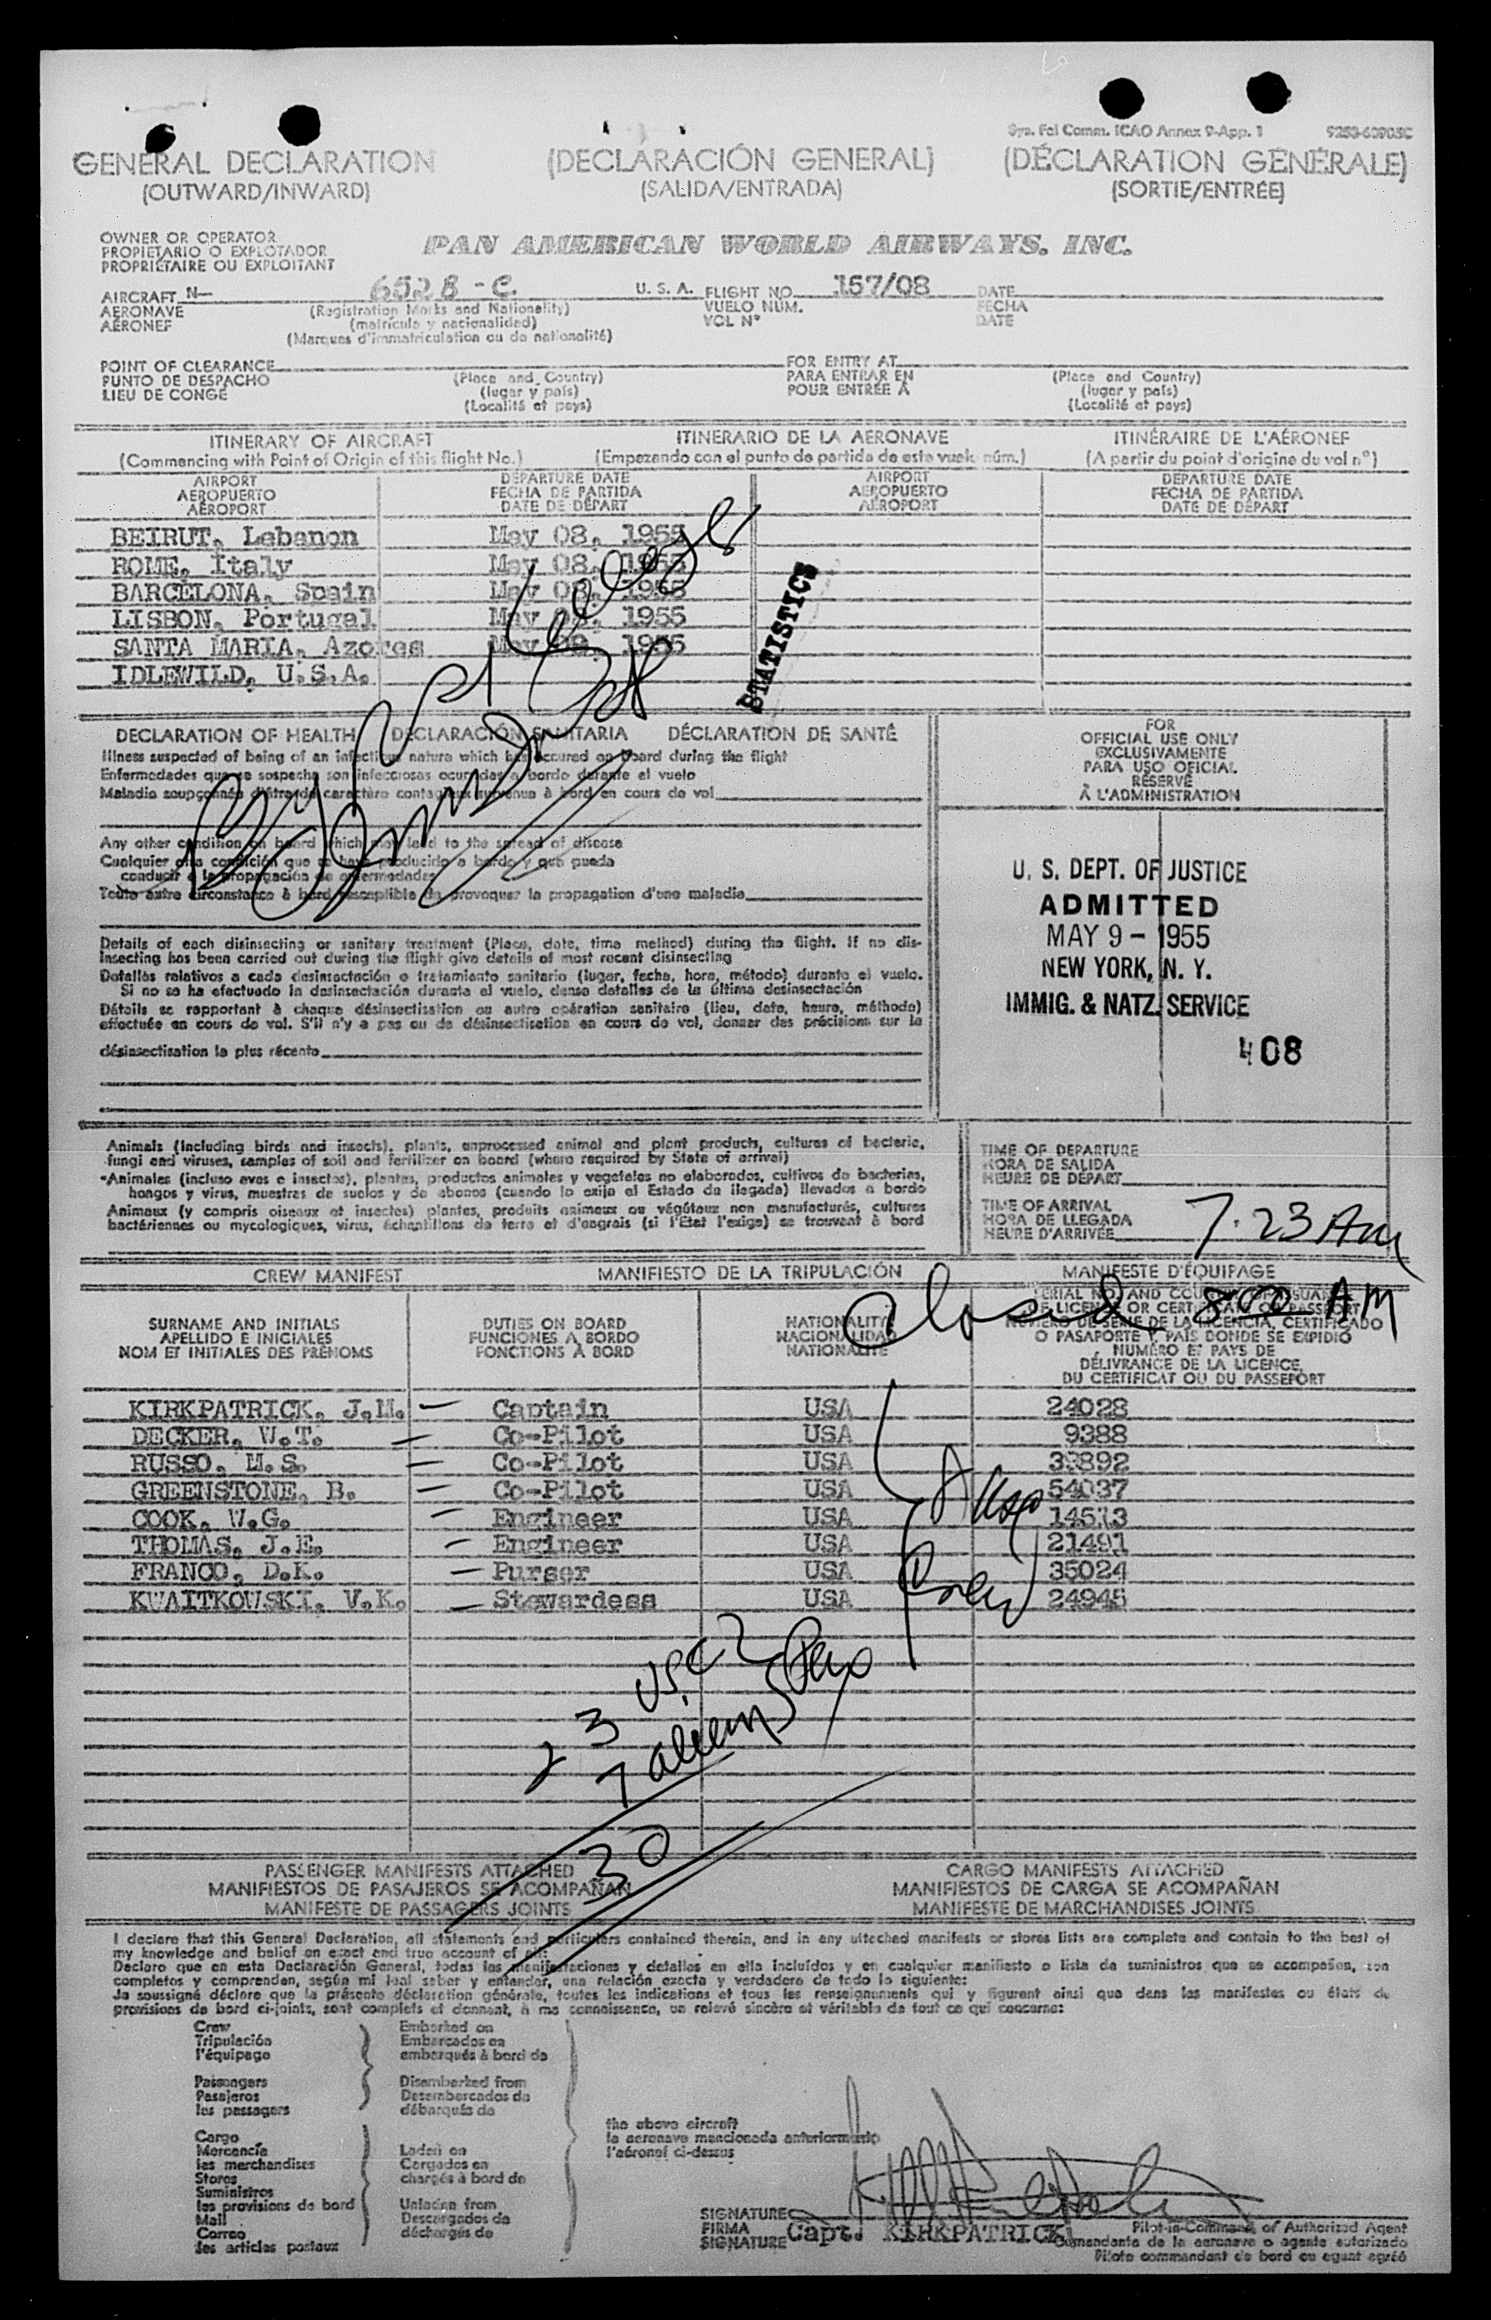 Sys. Fel Comm. ICAO Annex 9-App. 1
GENERAL DECLARATION (DECLARACIÓN GENERAL) (DÉCLARATION GÉNÉRALE)
(OUTWARD/INWARD) (SALIDA/ENTRADA) (SORTIE/ENTRÉE)
OWNER OR OPERATOR
PROPIETARIO O EXPLOTADOR
PROPRIÉTAIRE OU EXPLOITANT
PAN AMERICAN WORLD AIRWAYS, INC.
AIRCRAFT N- 6528 - C. U. S. A. FLIGHT NO. 157/08 DATE
AERONAVE (Registration Marks and Nationality) VUELO NUM. FECHA
AÉRONEF (matrícula y nacionalidad) VOL Nº DATE
(Marques d'immatriculation ou de nationalité)
POINT OF CLEARANCE FOR ENTRY AT
PUNTO DE DESPACHO (Place and Country) PARA ENTRAR EN (Place and Country)
LIEU DE CONGÉ (lugar y país) POUR ENTRÉE À (lugar y país)
(Localité et pays) (Localité et pays)
ITINERARY OF AIRCRAFT ITINERARIO DE LA AERONAVE ITINÉRAIRE DE L'AÉRONEF
(Commencing with Point of Origin of this flight No.) (Empezando con el punto de partida de este vuelo núm.) (A partir du point d'origine du vol nº)
AIRPORT DEPARTURE DATE AIRPORT DEPARTURE DATE
AEROPUERTO FECHA DE PARTIDA AEROPUERTO FECHA DE PARTIDA
AÉROPORT DATE DE DÉPART AÉROPORT DATE DE DÉPART
BEIRUT, Lebanon May 08, 1955
ROME, Italy May 08, 1955
BARCELONA, Spain May 08, 1955
LISBON, Portugal May 08, 1955
SANTA MARIA, Azores May 09, 1955
IDLEWILD, U.S.A.
STATISTICS
DECLARATION OF HEALTH DECLARACIÓN SANITARIA DÉCLARATION DE SANTÉ
Illness suspected of being of an infectious nature which has occured on board during the flight
Enfermedades que se sospecha son infecciosas ocurridas a bordo durante el vuelo
Maladie soupçonnée d'être de caractère contagieux survenue à bord en cours de vol
Any other condition on board which may lead to the spread of disease
Cualquier otra condición que se haya producido a bordo y que pueda
conducir a la propagación de enfermedades
Toute autre circonstance à bord susceptible de provoquer la propagation d'une maladie
Details of each disinsecting or sanitary treatment (Place, date, time method) during the flight. If no dis-
insecting has been carried out during the flight give details of most recent disinsecting
Detalles relativos a cada desinsectación o tratamiento sanitario (lugar, fecha, hora, método) durante el vuelo.
Si no se ha efectuado la desinsectación durante el vuelo, dense detalles de la última desinsectación
Détails se rapportant à chaque désinsectisation ou autre opération sanitaire (lieu, date, heure, méthode)
effectuée en cours de vol. S'il n'y a pas eu de désinsectisation en cours de vol, donner des précisions sur la
désinsectisation la plus récente
FOR
OFFICIAL USE ONLY
EXCLUSIVAMENTE
PARA USO OFICIAL
RÉSERVÉ
À L'ADMINISTRATION
U. S. DEPT. OF JUSTICE
ADMITTED
MAY 9 - 1955
NEW YORK, N. Y.
IMMIG. & NATZ. SERVICE
408
Animals (including birds and insects), plants, unprocessed animal and plant products, cultures of bacteria,
fungi and viruses, samples of soil and fertilizer on board (where required by State of arrival)
Animales (incluso aves e insectos), plantas, productos animales y vegetales no elaborados, cultivos de bacterias,
hongos y virus, muestras de suelos y de abonos (cuando lo exija el Estado de llegada) llevados a bordo
Animaux (y compris oiseaux et insectes) plantes, produits animaux ou végétaux non manufacturés, cultures
bactériennes ou mycologiques, virus, échantillons de terre et d'engrais (si l'État l'exige) se trouvant à bord
TIME OF DEPARTURE
HORA DE SALIDA
HEURE DE DÉPART
TIME OF ARRIVAL
HORA DE LLEGADA
HEURE D'ARRIVÉE
7.23 AM
CREW MANIFEST MANIFIESTO DE LA TRIPULACIÓN MANIFESTE D'ÉQUIPAGE
800 AM
SURNAME AND INITIALS
APELLIDO E INICIALES
NOM ET INITIALES DES PRÉNOMS
DUTIES ON BOARD
FUNCIONES A BORDO
FONCTIONS À BORD
NATIONALITY
NACIONALIDAD
NATIONALITÉ
SERIAL NO. AND COUNTRY OF ISSUANCE
OF LICENCE OR CERTIFICATE OR PASSPORT
NÚMERO DE SERIE DE LA LICENCIA, CERTIFICADO
O PASAPORTE Y PAÍS DONDE SE EXPIDIÓ
NUMÉRO ET PAYS DE
DÉLIVRANCE DE LA LICENCE,
DU CERTIFICAT OU DU PASSEPORT
KIRKPATRICK, J.M. — Captain USA 24028
DECKER, W.T. — Co-Pilot USA 9388
RUSSO, M.S. — Co-Pilot USA 33892
GREENSTONE, B. — Co-Pilot USA 54037
COOK, W.G. — Engineer USA 14513
THOMAS, J.E. — Engineer USA 21491
FRANCO, D.K. — Purser USA 35024
KWAITKOWSKI, V.K. — Stewardess USA 24945
Crew
23 USCZ
7 aliens
Pax
30
PASSENGER MANIFESTS ATTACHED CARGO MANIFESTS ATTACHED
MANIFIESTOS DE PASAJEROS SE ACOMPAÑAN MANIFIESTOS DE CARGA SE ACOMPAÑAN
MANIFESTE DE PASSAGERS JOINTS MANIFESTE DE MARCHANDISES JOINTS
I declare that this General Declaration, all statements and particulars contained therein, and in any attached manifests or stores lists are complete and contain to the best of
my knowledge and belief an exact and true account of all:
Declaro que en esta Declaración General, todas las manifestaciones y detalles en ella incluídos y en cualquier manifiesto o lista de suministros que se acompañan, son
completos y comprenden, según mi leal saber y entender, una relación exacta y verdadera de todo lo siguiente:
Je soussigné déclare que la présente déclaration générale, toutes les indications et tous les renseignements qui y figurent ainsi que dans les manifestes ou états de
provisions de bord ci-joints, sont complets et donnent, à ma connaissance, un relevé sincère et véritable de tout ce qui concerne:
Crew Embarked on
Tripulación Embarcados en
l'équipage embarqués à bord de
Passengers Disembarked from
Pasajeros Desembarcados de
les passagers débarqués de
Cargo
Mercancía Laden on
les merchandises Cargados en
Stores chargés à bord de
Suministros
les provisions de bord Unladen from
Mail Descargados de
Correo déchargés de
les articles postaux
the above aircraft
la aeronave mencionada anteriormente
l'aéronef ci-dessus
SIGNATURE
FIRMA
SIGNATURE
Capt. KIRKPATRICK
Pilot-in-Command of Authorized Agent
Comandante de la aeronave o agente autorizado
Pilote commandant de bord ou agent agréé